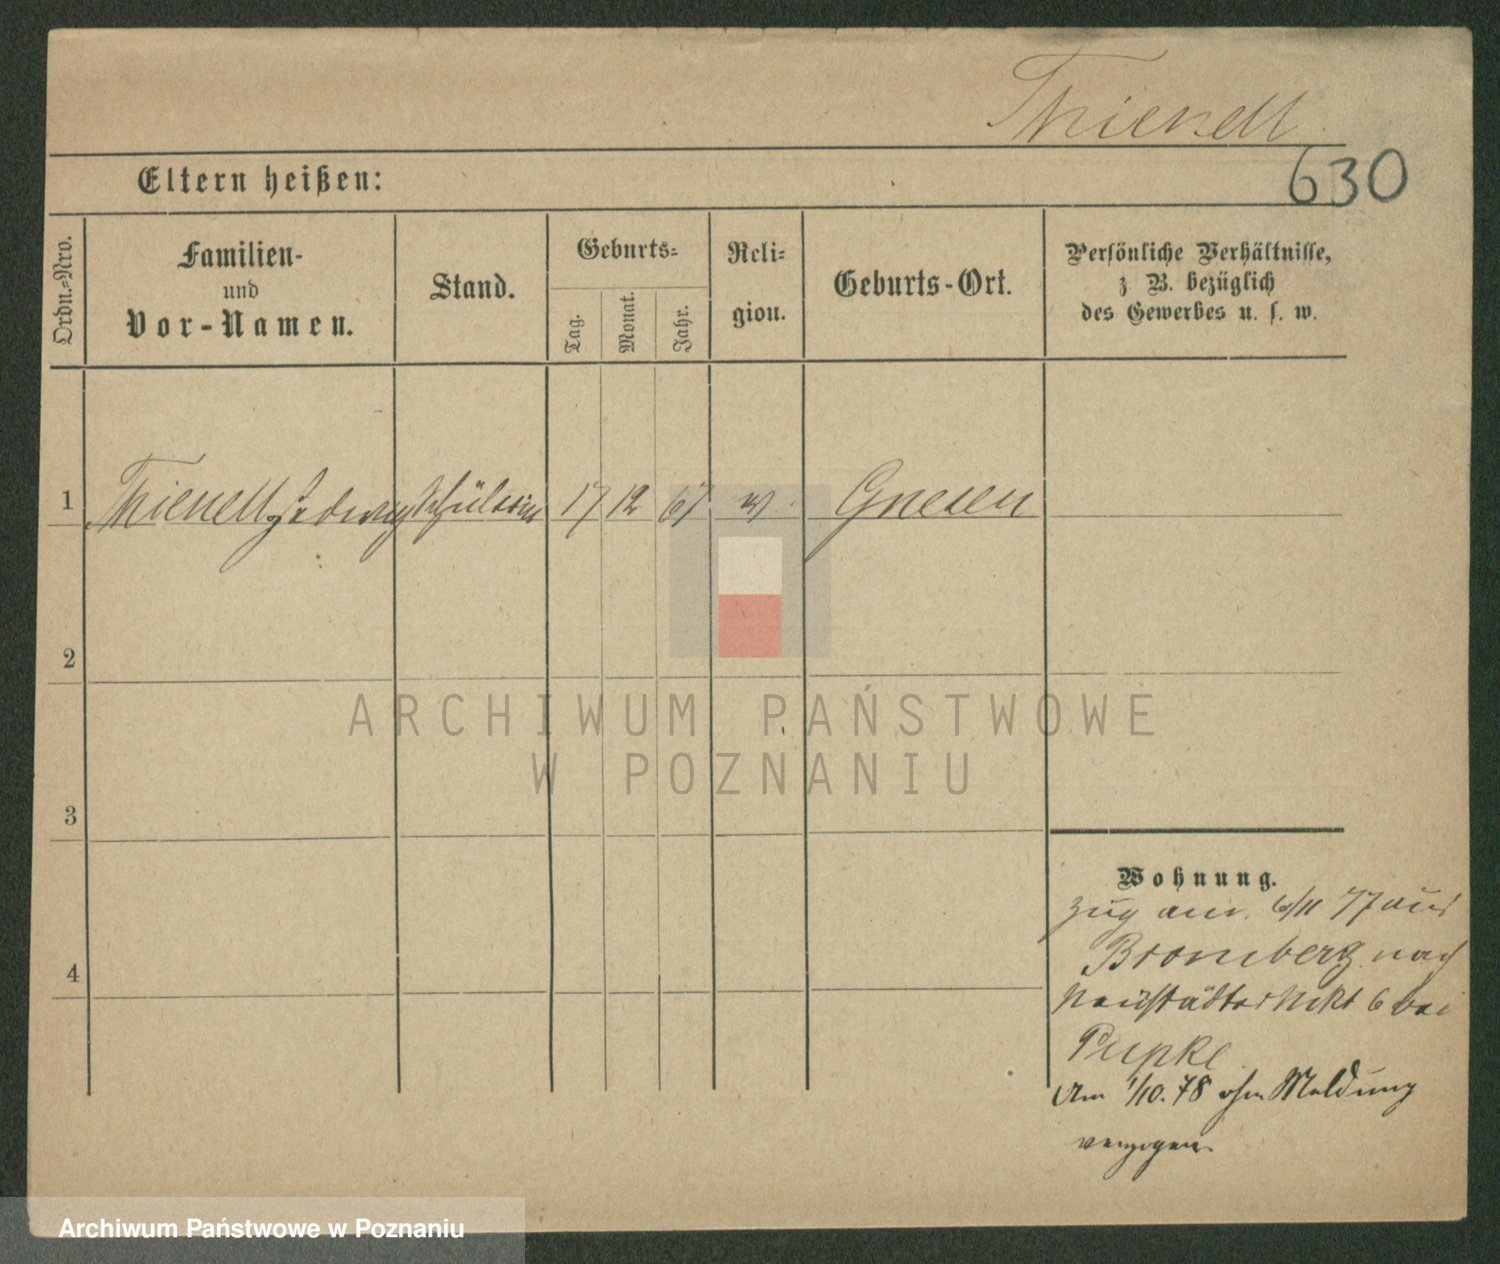 Thienell
630
Eltern heißen:
Ordn.-Nro.
Familien-
und
Vor-Namen.
Stand.
Geburts-
Tag.
Monat.
Jahr.
Reli-
gion.
Geburts-Ort.
Persönliche Verhältnisse,
z. B. bezüglich
des Gewerbes u. s. w.
1 Thienell Hedwig Schülerin 17 12 67 Gnesen
2
3
4
Wohnung.
Zug am 6/11 77 aus
Bromberg nach
Neustädter Mrkt 6 bei
Pupke
Am 1/10. 78 ohne Meldung
verzogen.
ARCHIWUM PAŃSTWOWE
W POZNANIU
Archiwum Państwowe w Poznaniu